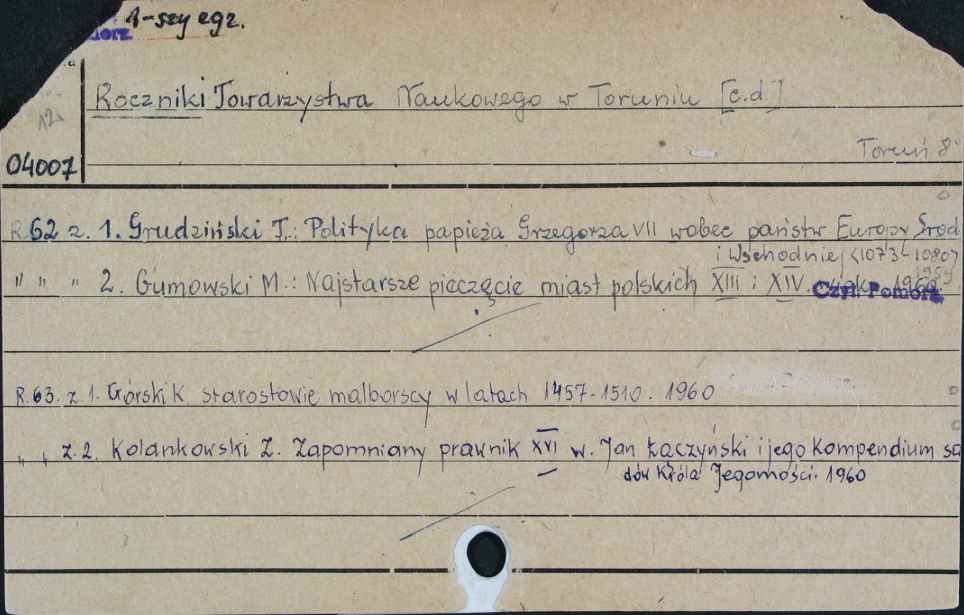 1-szy egz.
Roczniki Towarzystwa Naukowego w Toruniu [c.d.]
12
04007
Toruń 8°
R.62 z. 1. Grudziński T.: Polityka papieża Grzegorza VII wobec państw Europy Środ.
i Wschodniej (1073-1080)
1959
" " " 2. Gumowski M.: Najstarsze pieczęcie miast polskich XIII i XIV. 1960.
Czyt. Pomorz.
R.63. z 1. Górski K starostowie malborscy w latach 1457-1510. 1960
" " z. 2. Kolankowski Z. Zapomniany prawnik XVI w. Jan Łączyński i jego Kompendium są
dów Króla Jegomości. 1960